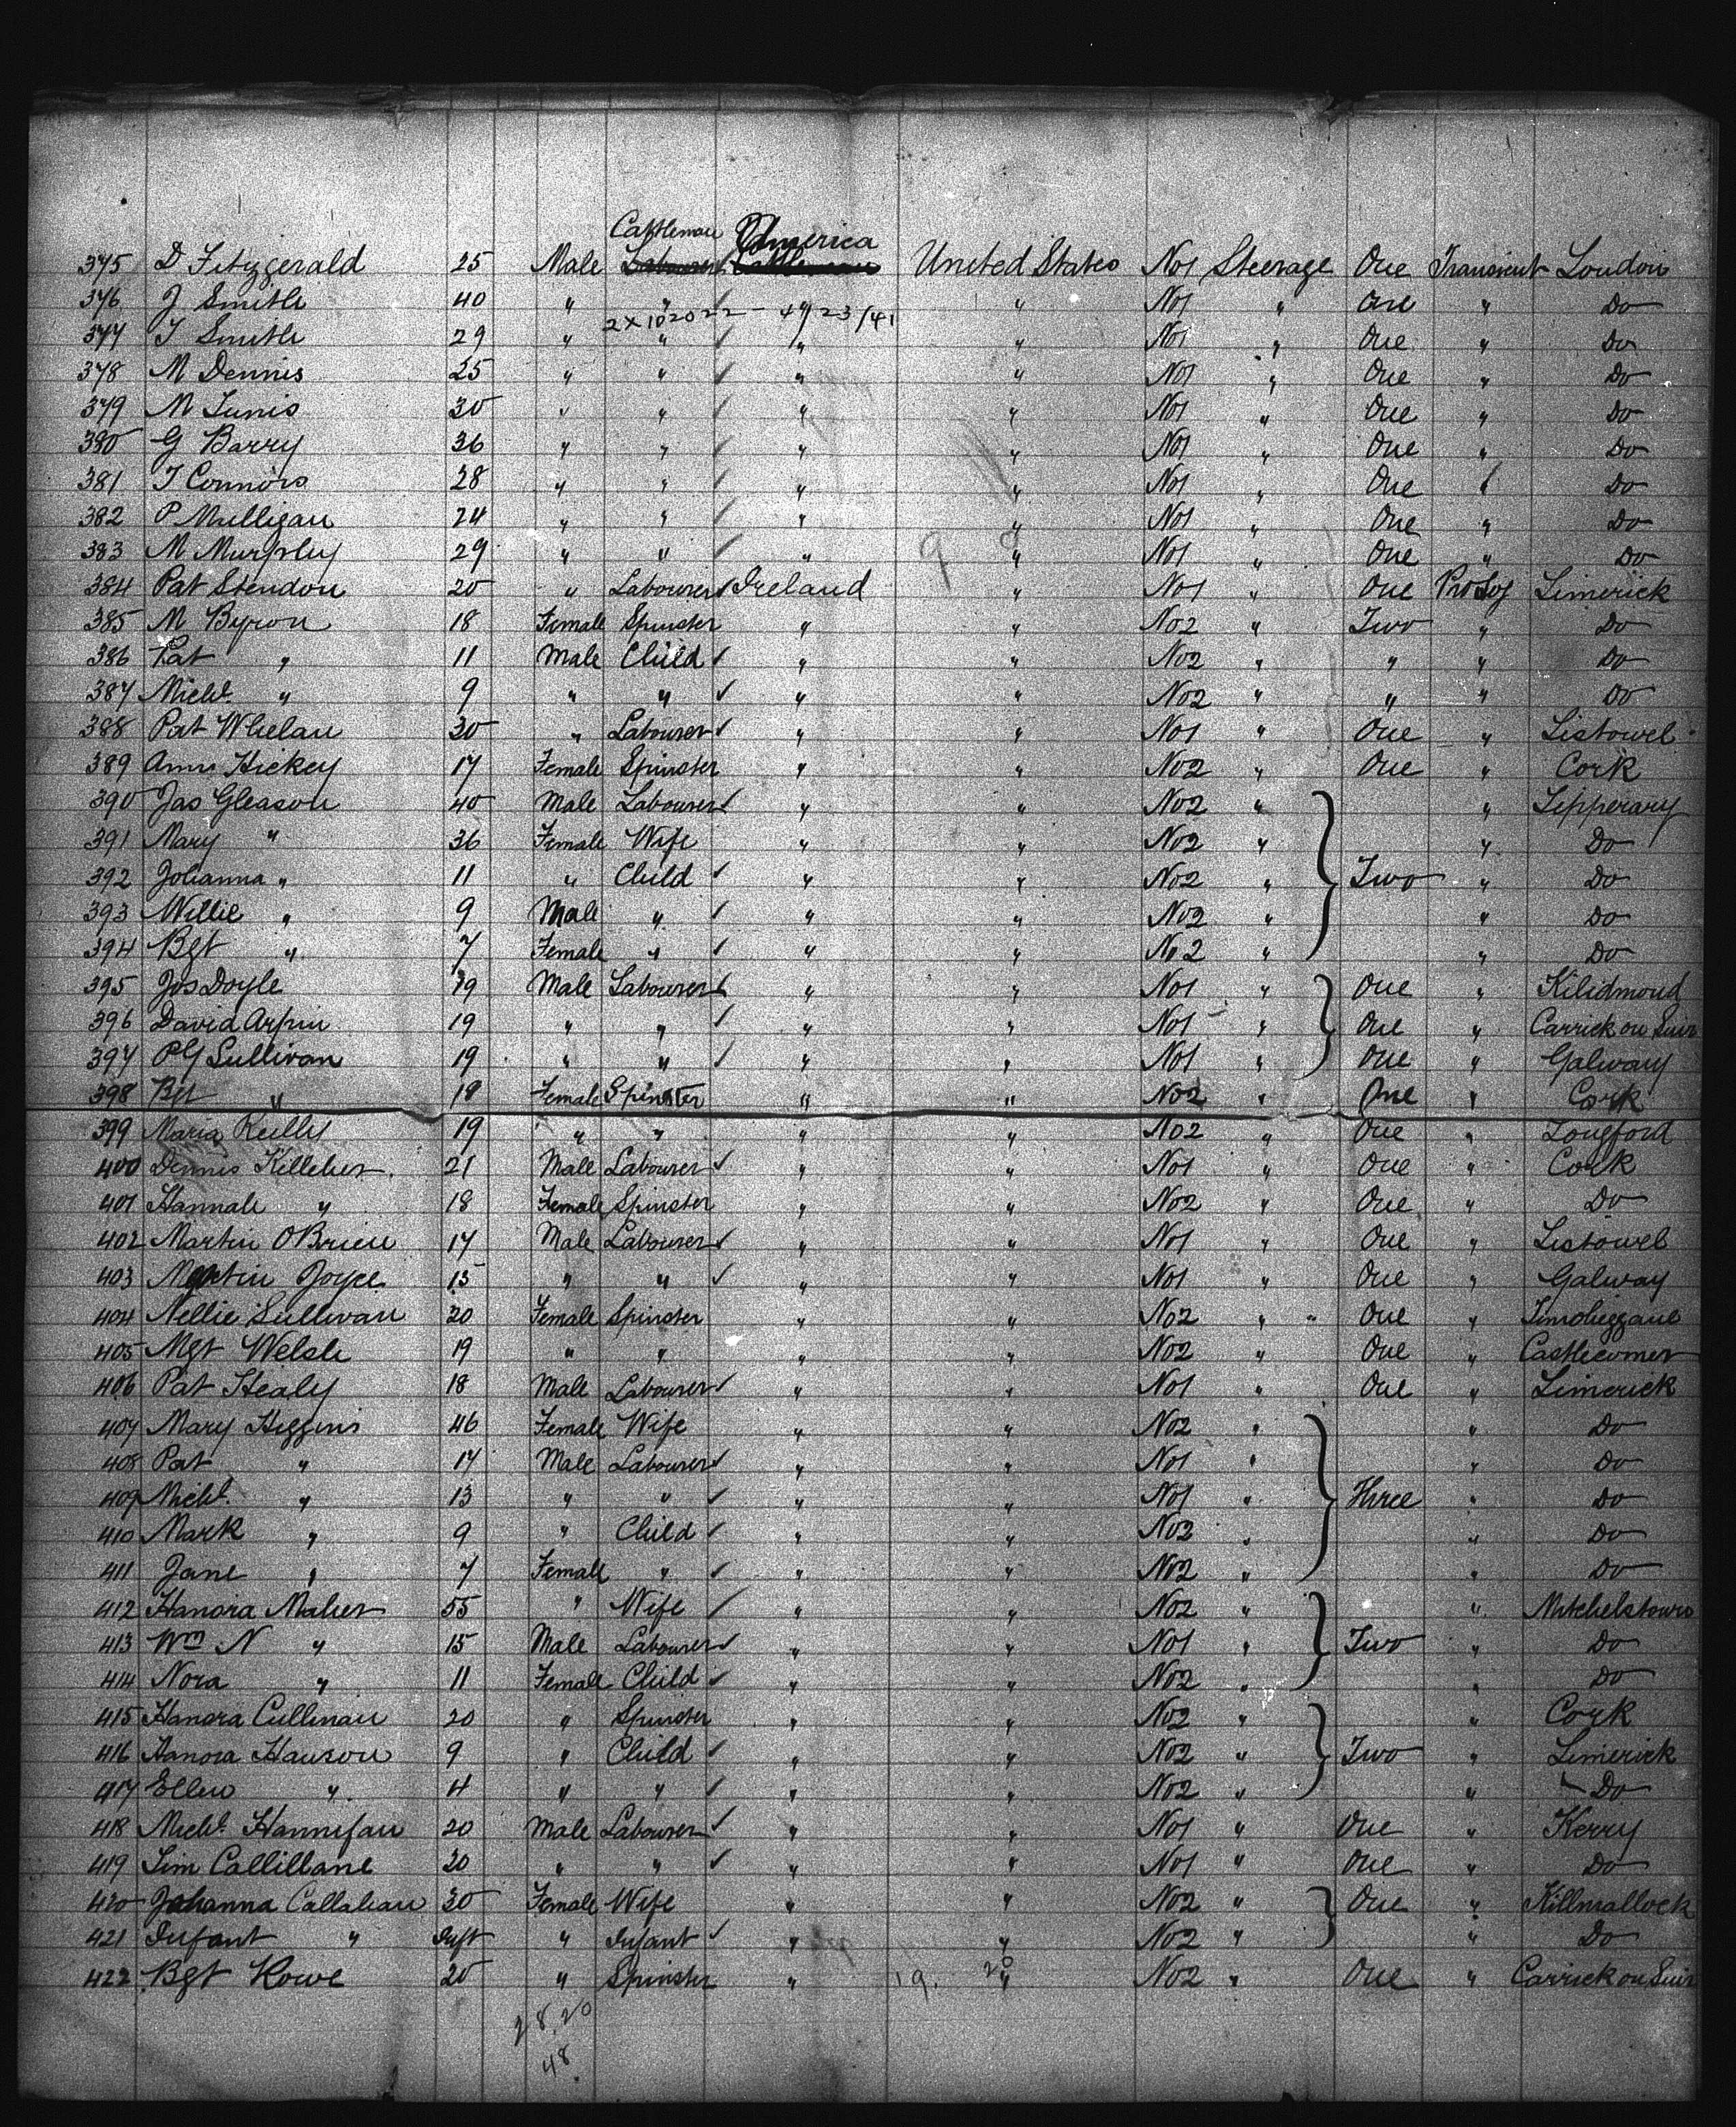 Cattleman America
375 D Fitzgerald 25 Male United States No1 Steerage One Transient London
376 J Smith 40 " " " " No1 " One " Do
2 x 102022 - 4/23/41
377 T Smith 29 " " " " No1 " One " Do
378 M Dennis 25 " " " " No1 " One " Do
379 M Tunis 30 " " " " No1 " One " Do
380 G Barry 36 " " " " No1 " One " Do
381 T Connors 28 " " " " No1 " One " Do
382 P Mulligan 24 " " " " No1 " One " Do
383 M Murphy 29 " " " " No1 " One " Do
384 Pat Stendon 20 " Labourer Ireland " No1 " One Limerick
385 M Byron 18 Female Spinster " " No2 " Two " Do
386 Pat " 11 Male Child " " No2 " " " Do
387 Michl " 9 " " " " No2 " " " Do
388 Pat Whelan 30 " Labourer " " No1 " One " Listowel
389 Ann Hickey 17 Female Spinster " " No2 " One " Cork
390 Jas Gleason 40 Male Labourer " " No2 " " Tipperary
391 Mary " 36 Female Wife " " No2 " " Do
392 Johanna " 11 " Child " " No2 " Two " Do
393 Willie " 9 Male " " " No2 " " Do
394 Bgt " 7 Female " " " No2 " " Do
395 Jos Doyle 19 Male Labourer " " No1 " One " Kilidmond
396 David Arpin 19 " " " " No1 " One " Carrick on Suir
397 PG Sullivan 19 " " " " No1 " One " Galway
398 Bgt " 18 Female Spinster " " No2 " One " Cork
399 Maria Reilly 19 " " " " No2 " One " Longford
400 Dennis Killeher 21 Male Labourer " " No1 " One " Cork
401 Hannah " 18 Female Spinster " " No2 " One " Do
402 Martin OBrien 17 Male Labourer " " No1 " One " Listowel
403 Martin Joyce 15 " " " " No1 " One " Galway
404 Nellie Sullivan 20 Female Spinster " " No2 " " One "
405 Mgt Welsh 19 " " " " No2 " One " Castlecomer
406 Pat Healy 18 Male Labourer " " No1 " One " Limerick
407 Mary Higgins 46 Female Wife " " No2 " " Do
408 Pat " 17 Male Labourer " " No1 " " Do
409 Michl. " 13 " " " " No1 " Three " Do
410 Mark " 9 " Child " " No2 " " Do
411 Jane " 7 Female " " " No2 " " Do
412 Hanora Maher 55 " Wife " " No2 " " Mitchelstown
413 Wm N " 15 Male Labourer " " No1 " Two " Do
414 Nora " 11 Female Child " " No2 " " Do
415 Hanora Cullinan 20 " Spinster " " No2 " " Cork
416 Hanora Hanson 9 " Child " " No2 " Two " Limerick
417 Ellen " 4 " " " " No2 " " Do
418 Michl. Hannifan 20 Male Labourer " " No1 " One " Kerry
419 Tim Callillane 20 " " " " No1 " One " Do
420 Johanna Callahan 30 Female Wife " " No2 " One " Killmallock
421 Infant " Inft " Infant " " No2 " " Do
422 Bgt Rowe 20 " Spinster " 19. 20 " No2 " One " Carrick on Suir
28.20
48